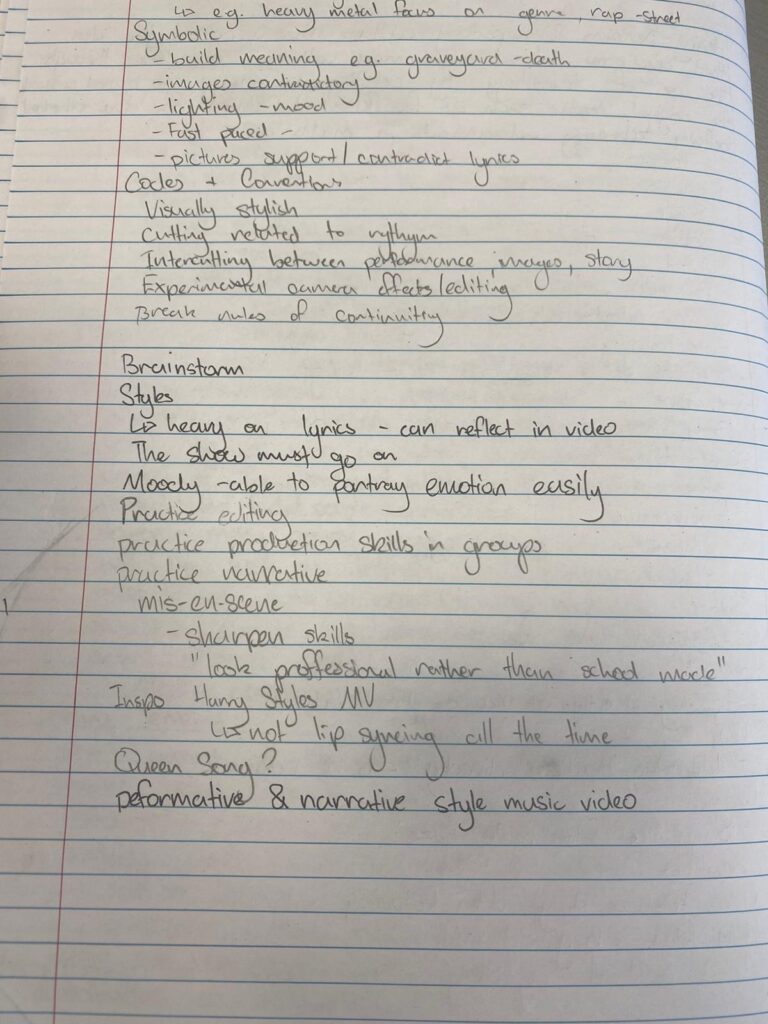 ↳ eg. heavy metal focus on genre, rap -street
Symbolic
- build meaning eg. graveyard -death
-images contradictory
-lighting -mood
- Fast paced -
- pictures support/contradict lyrics
Codes + Conventions
Visually stylish
Cutting related to rythym
Intercutting between performance, images, story
Experimental camera effects/editing
Break rules of continuitiy
Brainstorm
Styles
↳ heavy on lyrics - can reflect in video
The show must go on
Moody -able to portray emotion easily
Practice editing
practice production skills in groups
practice narrative
mis-en-scene
- sharpen skills
"look proffessional rather than school made"
Inspo Harry Styles MV
↳ not lip syncing all the time
Queen Song?
peformative & narrative style music video